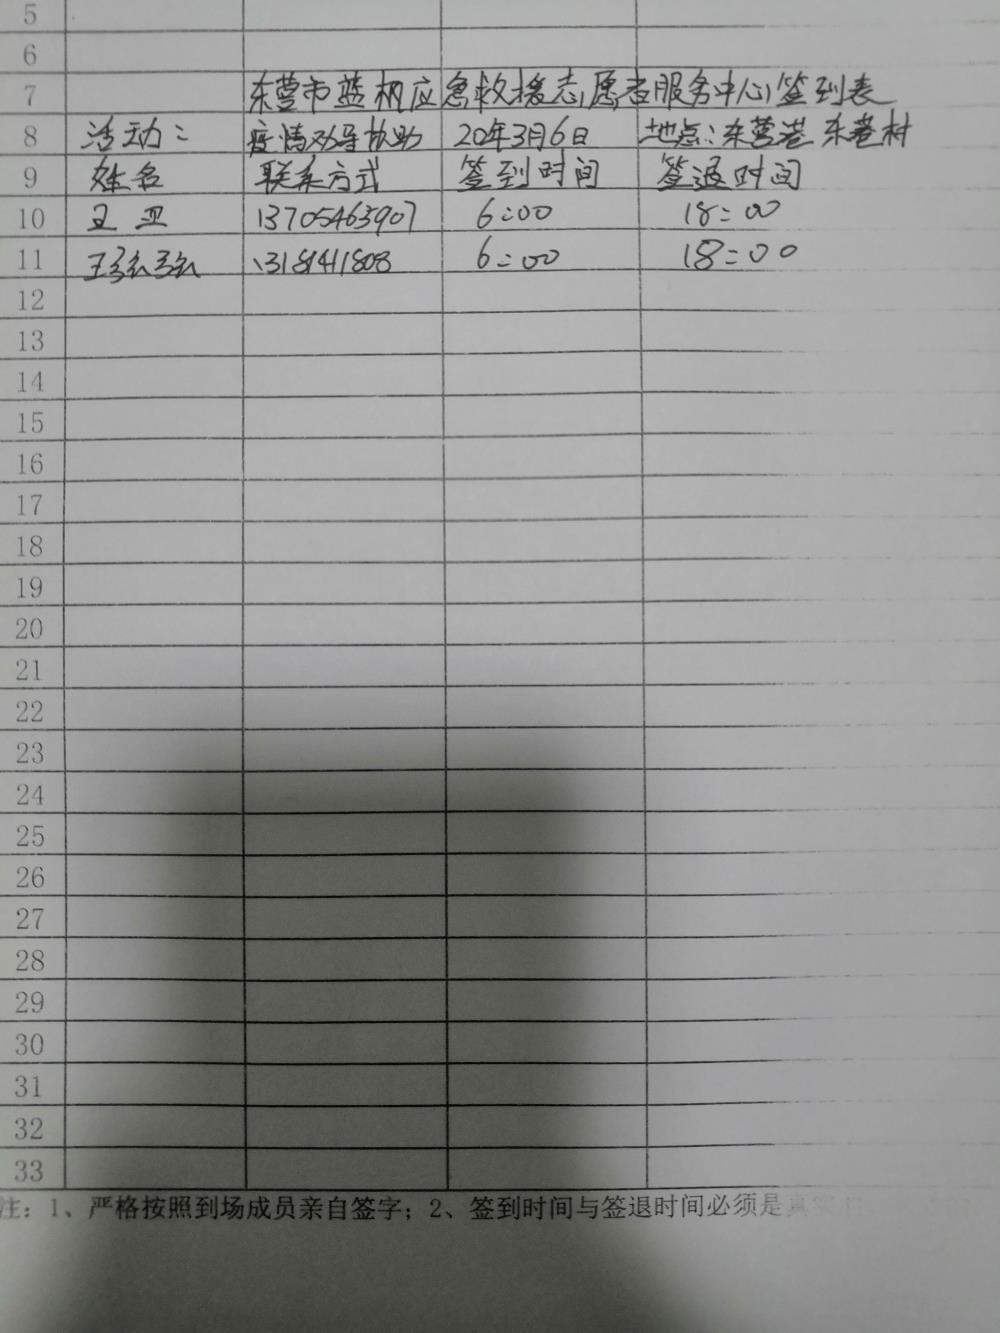 5
6
7 东营市蓝枫应急救援志愿者服务中心签到表
8 活动: 疫情劝导协助 20年3月6日 地点:东营港东港村
9 姓名 联系方式 签到时间 签退时间
10 王亚 13705463907 6:00 18:00
11 13181411808 6:00 18:00
12
13
14
15
16
17
18
19
20
21
22
23
24
25
26
27
28
29
30
31
32
33
注:1、严格按照到场成员亲自签字;2、签到时间与签退时间必须是真实